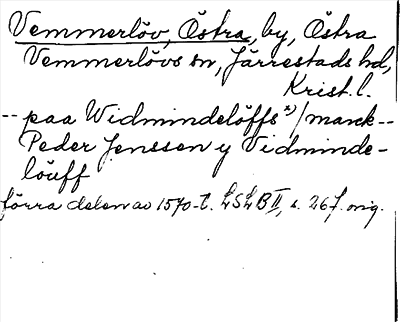 Vemmerlöv, Östra, by, Östra
Vemmerlövs sn, Järrestads hd,
Krist. l.
-- paa Widmindelöffs x)/marck --
Peder Jenssen y Vidminde-
löuff
förra delen av 1570-t. LSLB II, s. 267. orig.